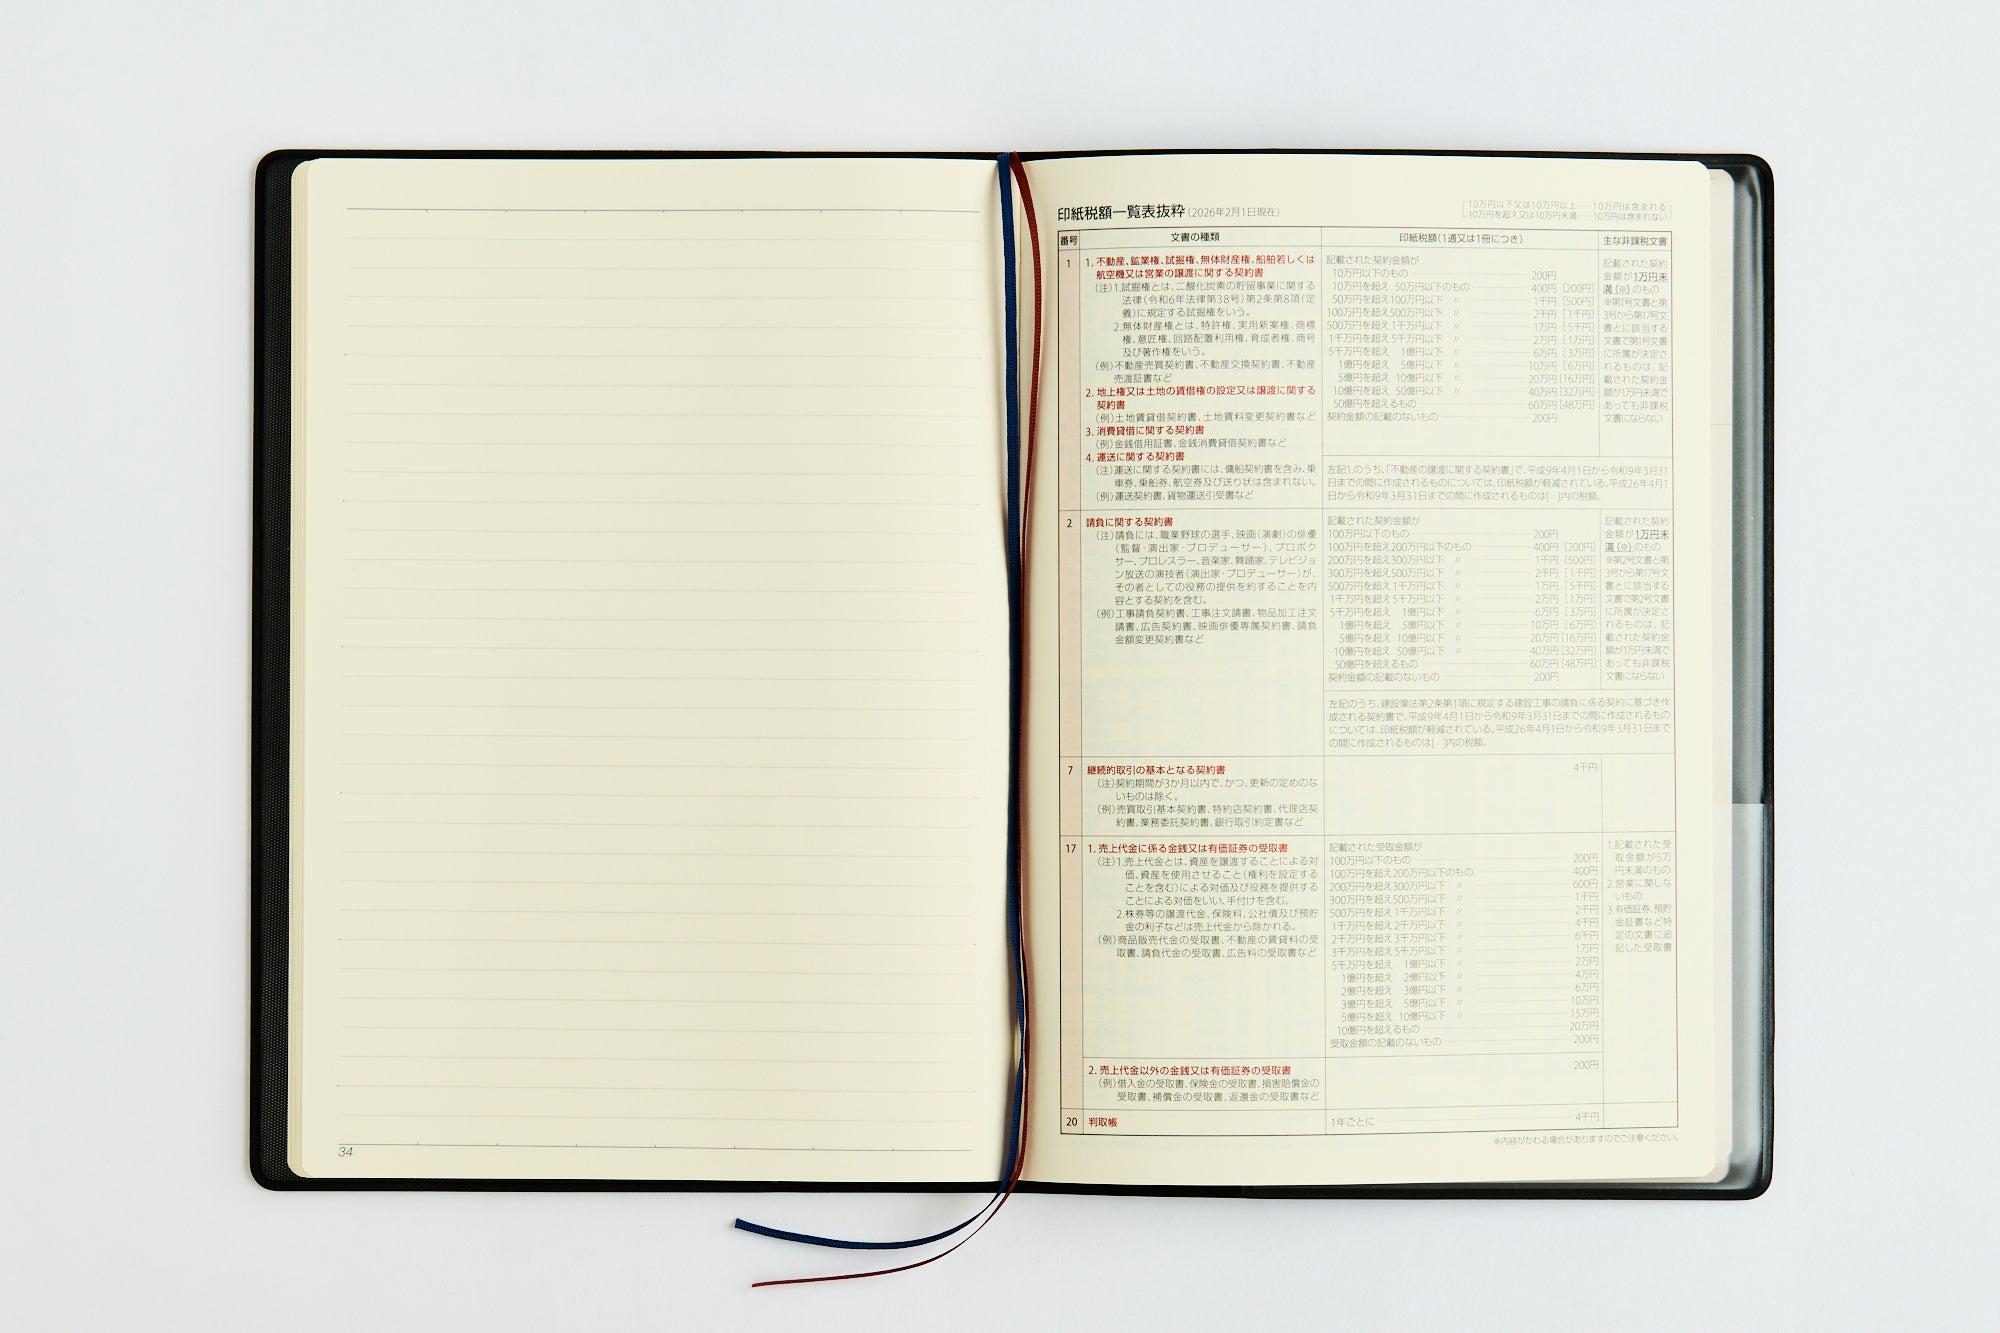 34
印紙税額一覧表抜粋（2026年2月1日現在）
10万円以下又は10万円以上……10万円は含まれる
10万円を超え又は10万円未満……10万円は含まれない
番号 文書の種類 印紙税額（1通又は1冊につき） 主な非課税文書
1 1. 不動産、鉱業権、試掘権、無体財産権、船舶若しくは
航空機又は営業の譲渡に関する契約書
（注）1.試掘権とは、二酸化炭素の貯留事業に関する
法律（令和6年法律第38号）第2条第8項（定
義）に規定する試掘権をいう。
2.無体財産権とは、特許権、実用新案権、商標
権、意匠権、回路配置利用権、育成者権、商号
及び著作権をいう。
（例）不動産売買契約書、不動産交換契約書、不動産
売渡証書など
2. 地上権又は土地の賃借権の設定又は譲渡に関する
契約書
（例）土地賃貸借契約書、土地賃料変更契約書など
3. 消費貸借に関する契約書
（例）金銭借用証書、金銭消費貸借契約書など
4. 運送に関する契約書
（注）運送に関する契約書には、傭船契約書を含み、乗
車券、乗船券、航空券及び送り状は含まれない。
（例）運送契約書、貨物運送引受書など
記載された契約金額が
10万円以下のもの 200円
10万円を超え 50万円以下のもの 400円［200円］
50万円を超え100万円以下 〃 1千円［500円］
100万円を超え500万円以下 〃 2千円［1千円］
500万円を超え1千万円以下 〃 1万円［5千円］
1千万円を超え5千万円以下 〃 2万円［1万円］
5千万円を超え 1億円以下 〃 6万円［3万円］
1億円を超え 5億円以下 〃 10万円［6万円］
5億円を超え 10億円以下 〃 20万円［16万円］
10億円を超え 50億円以下 〃 40万円［32万円］
50億円を超えるもの 60万円［48万円］
契約金額の記載のないもの 200円
記載された契約
金額が1万円未
満（※）のもの
※第1号文書と第
3号から第17号文
書とに該当する
文書で第1号文書
に所属が決定さ
れるものは、記
載された契約金
額が1万円未満で
あっても非課税
文書にならない
左記1.のうち、「不動産の譲渡に関する契約書」で、平成9年4月1日から令和9年3月31
日までの間に作成されるものについては、印紙税額が軽減されている。平成26年4月1
日から令和9年3月31日までの間に作成されるものは［　］内の税額。
2 請負に関する契約書
（注）請負には、職業野球の選手、映画（演劇）の俳優
（監督・演出家・プロデューサー）、プロボク
サー、プロレスラー、音楽家、舞踊家、テレビジョ
ン放送の演技者（演出家・プロデューサー）が、
その者としての役務の提供を約することを内
容とする契約を含む。
（例）工事請負契約書、工事注文請書、物品加工注文
請書、広告契約書、映画俳優専属契約書、請負
金額変更契約書など
記載された契約金額が
100万円以下のもの 200円
100万円を超え200万円以下のもの 400円［200円］
200万円を超え300万円以下 〃 1千円［500円］
300万円を超え500万円以下 〃 2千円［1千円］
500万円を超え1千万円以下 〃 1万円［5千円］
1千万円を超え5千万円以下 〃 2万円［1万円］
5千万円を超え 1億円以下 〃 6万円［3万円］
1億円を超え 5億円以下 〃 10万円［6万円］
5億円を超え 10億円以下 〃 20万円［16万円］
10億円を超え 50億円以下 〃 40万円［32万円］
50億円を超えるもの 60万円［48万円］
契約金額の記載のないもの 200円
記載された契約
金額が1万円未
満（※）のもの
※第2号文書と第
3号から第17号文
書とに該当する
文書で第2号文書
に所属が決定さ
れるものは、記
載された契約金
額が1万円未満で
あっても非課税
文書にならない
左記のうち、建設業法第2条第1項に規定する建設工事の請負に係る契約に基づき作
成される契約書で、平成9年4月1日から令和9年3月31日までの間に作成されるもの
については、印紙税額が軽減されている。平成26年4月1日から令和9年3月31日まで
の間に作成されるものは［　］内の税額。
7 継続的取引の基本となる契約書 4千円
（注）契約期間が3か月以内で、かつ、更新の定めのな
いものは除く。
（例）売買取引基本契約書、特約店契約書、代理店契
約書、業務委託契約書、銀行取引約定書など
17 1. 売上代金に係る金銭又は有価証券の受取書
（注）1.売上代金とは、資産を譲渡することによる対
価、資産を使用させること（権利を設定する
ことを含む）による対価及び役務を提供する
ことによる対価をいい、手付けを含む。
2.株券等の譲渡代金、保険料、公社債及び預貯
金の利子などは売上代金から除かれる。
（例）商品販売代金の受取書、不動産の賃貸料の受
取書、請負代金の受取書、広告料の受取書など
記載された受取金額が
100万円以下のもの 200円
100万円を超え200万円以下のもの 400円
200万円を超え300万円以下 〃 600円
300万円を超え500万円以下 〃 1千円
500万円を超え1千万円以下 〃 2千円
1千万円を超え2千万円以下 〃 4千円
2千万円を超え3千万円以下 〃 6千円
3千万円を超え5千万円以下 〃 1万円
5千万円を超え 1億円以下 〃 2万円
1億円を超え 2億円以下 〃 4万円
2億円を超え 3億円以下 〃 6万円
3億円を超え 5億円以下 〃 10万円
5億円を超え 10億円以下 〃 15万円
10億円を超えるもの 20万円
受取金額の記載のないもの 200円
1.記載された受
取金額が5万
円未満のもの
2.営業に関しな
いもの
3.有価証券、預貯
金証書など特
定の文書に追
記した受取書
2. 売上代金以外の金銭又は有価証券の受取書 200円
（例）借入金の受取書、保険金の受取書、損害賠償金の
受取書、補償金の受取書、返還金の受取書など
20 判取帳 1年ごとに 4千円
※内容がかわる場合がありますのでご注意ください。